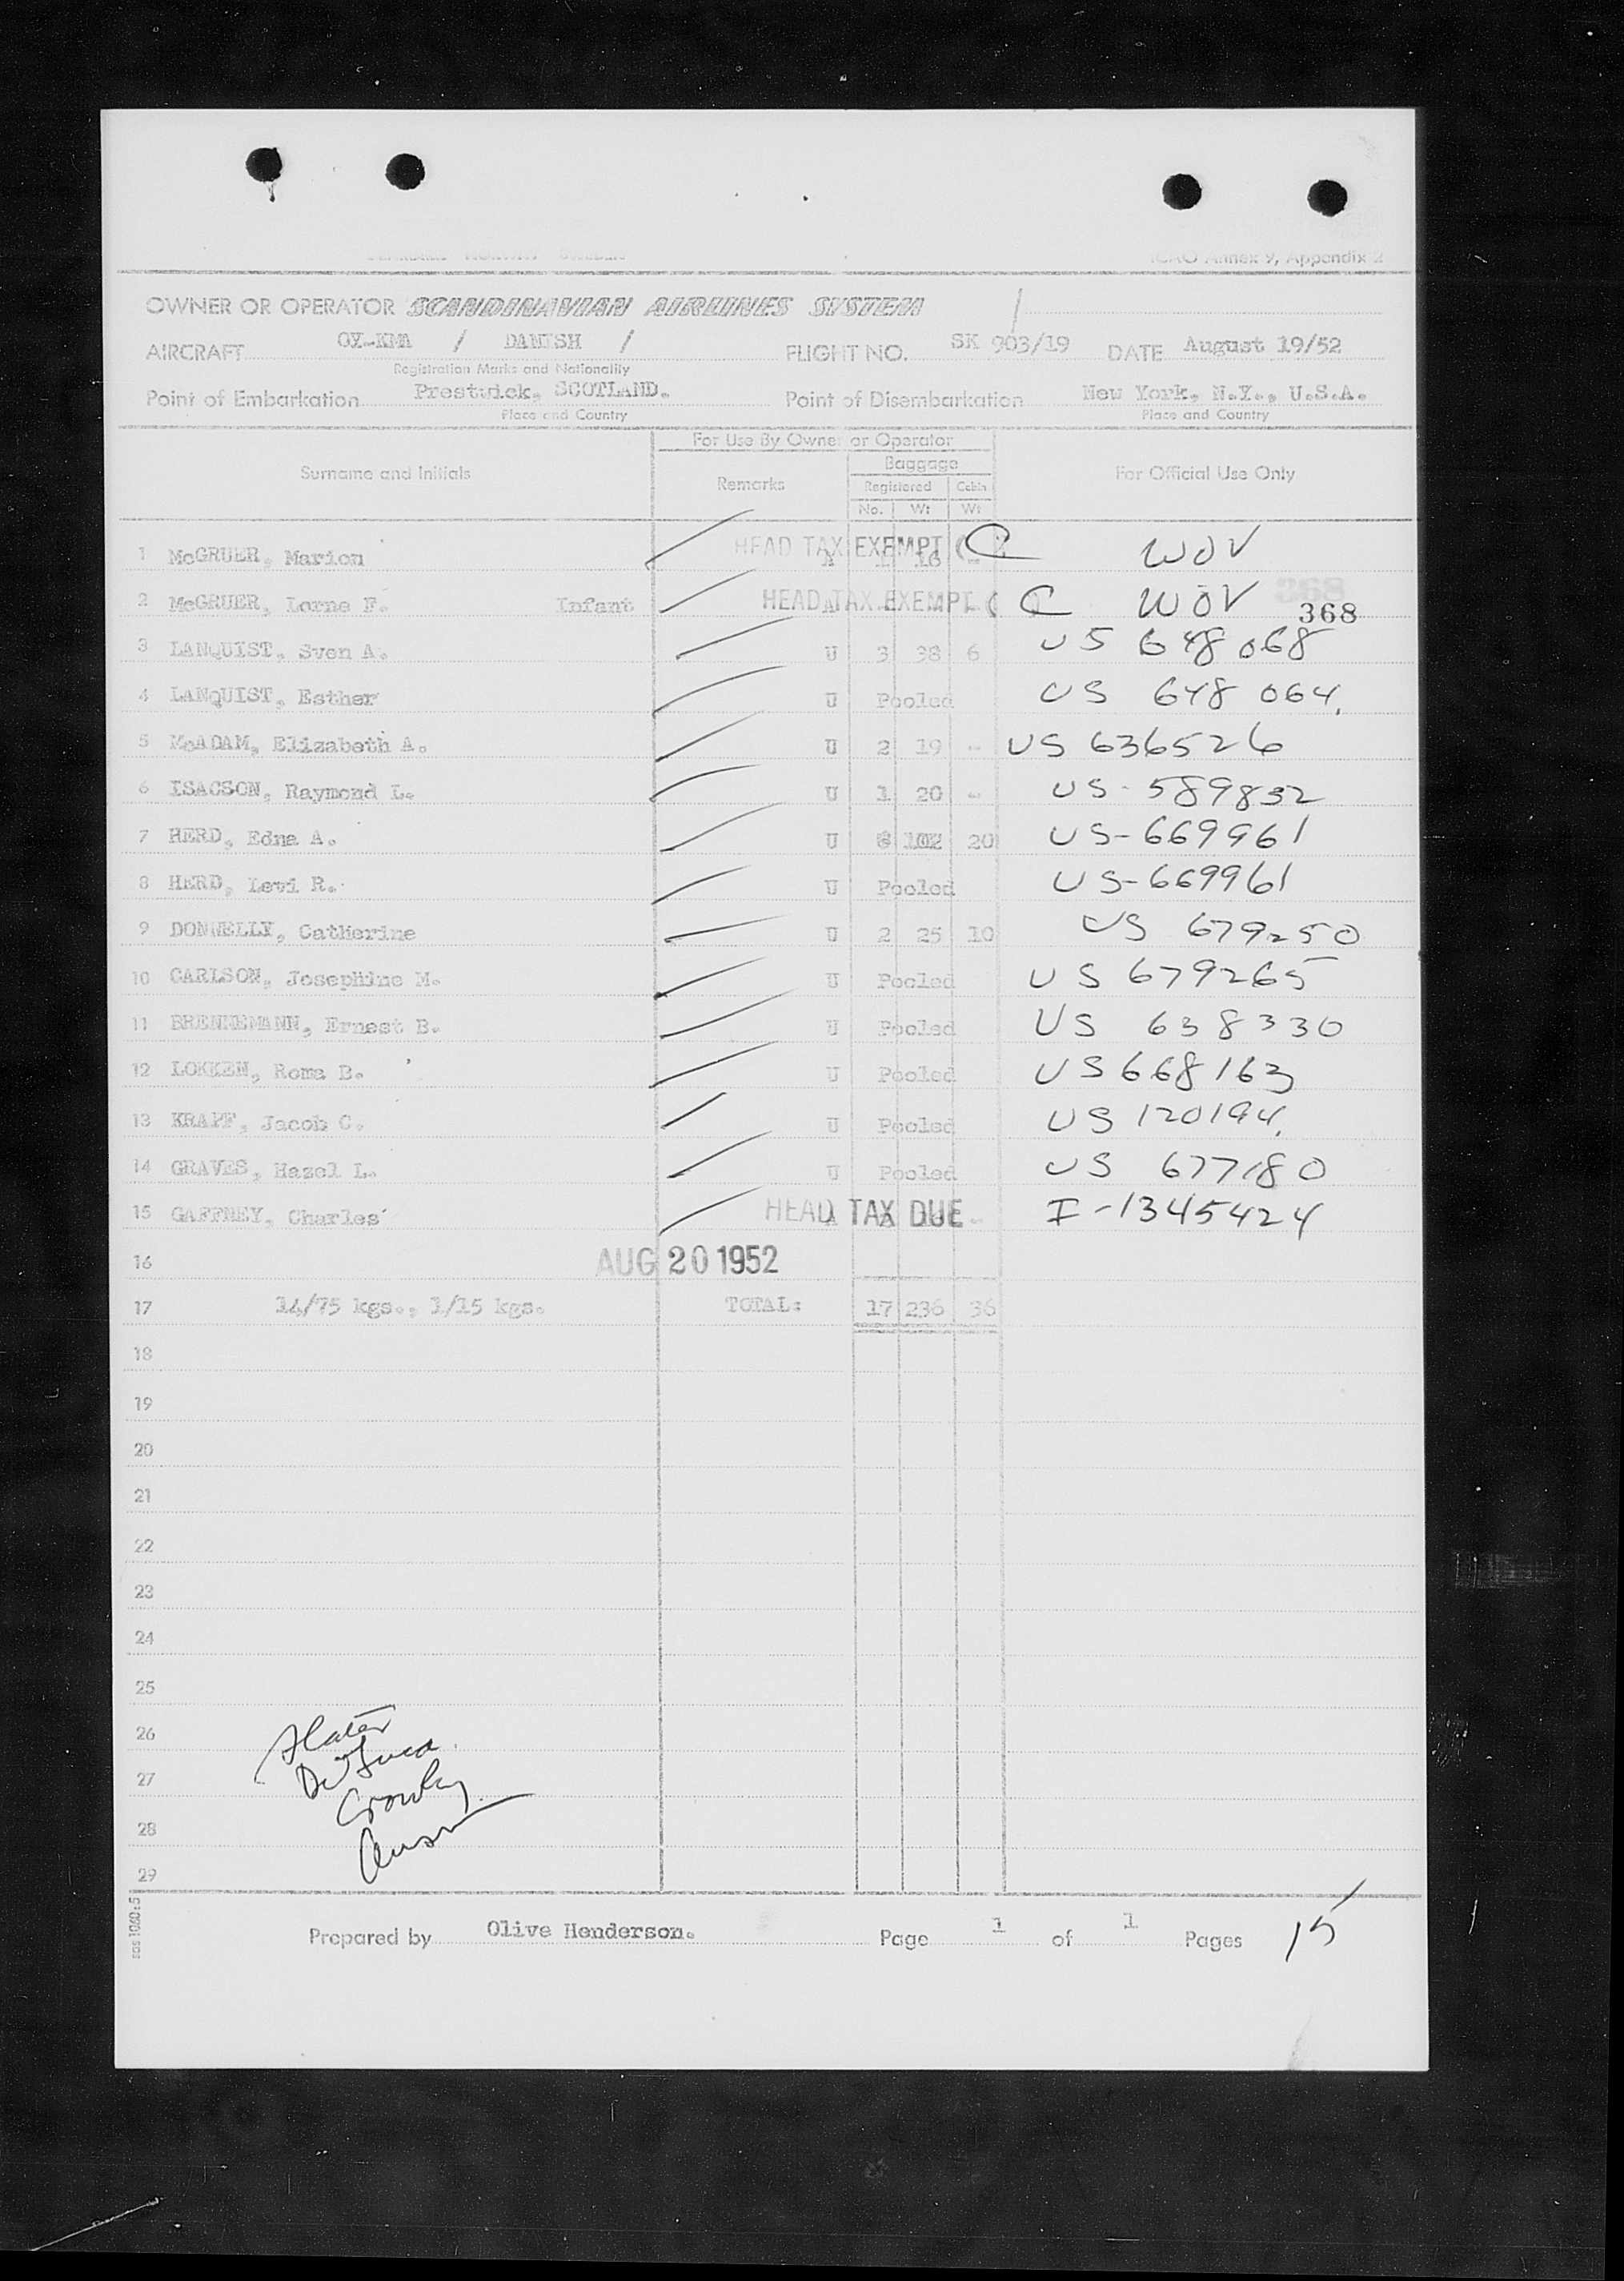 ICAO Annex 9, Appendix 2
OWNER OR OPERATOR SCANDINAVIAN AIRLINES SYSTEM
AIRCRAFT OY-KMA / DANISH / FLIGHT NO. SK 903/19 DATE August 19/52
Registration Marks and Nationality
Point of Embarkation Prestwick, SCOTLAND. Point of Disembarkation New York, N.Y., U.S.A.
Place and Country Place and Country
For Use By Owner or Operator
Surname and Initials Remarks Baggage For Official Use Only
Registered Cabin
No. Wt Wt
1 McGRUER, Marion HEAD TAX EXEMPT ( A 1 16 - C WOV
2 McGRUER, Lorne F. Infant HEAD TAX EXEMPT ( C WOV 368
3 LANQUIST, Sven A. U 3 38 6 US 648068
4 LANQUIST, Esther U Pooled US 648 064.
5 McADAM, Elizabeth A. U 2 19 - US 636526
6 ISACSON, Raymond L. U 1 20 - US-589832
7 HERD, Edna A. U 102 20 US-669961
8 HERD, Levi R. U Pooled US-669961
9 DONNELLY, Catherine U 2 25 10 US 679250
10 CARLSON, Josephine M. U Pooled US 679265
11 BRENNEMANN, Ernest B. U Pooled US 638330
12 LOKKEN, Roma B. U Pooled US 668163
13 KRAPF, Jacob C. U Pooled US 120194.
14 GRAVES, Hazel L. U Pooled US 677180
15 GAFFNEY, Charles HEAD TAX DUE - I-1345424
16 AUG 20 1952
17 14/75 kgs., 1/15 kgs. TOTAL: 17 236 36
18
19
20
21
22
23
24
25
26 Slater
27 DeLuca
Crowley
28
29
sas 1060:5
Prepared by Olive Henderson. Page 1 of 1 Pages 15